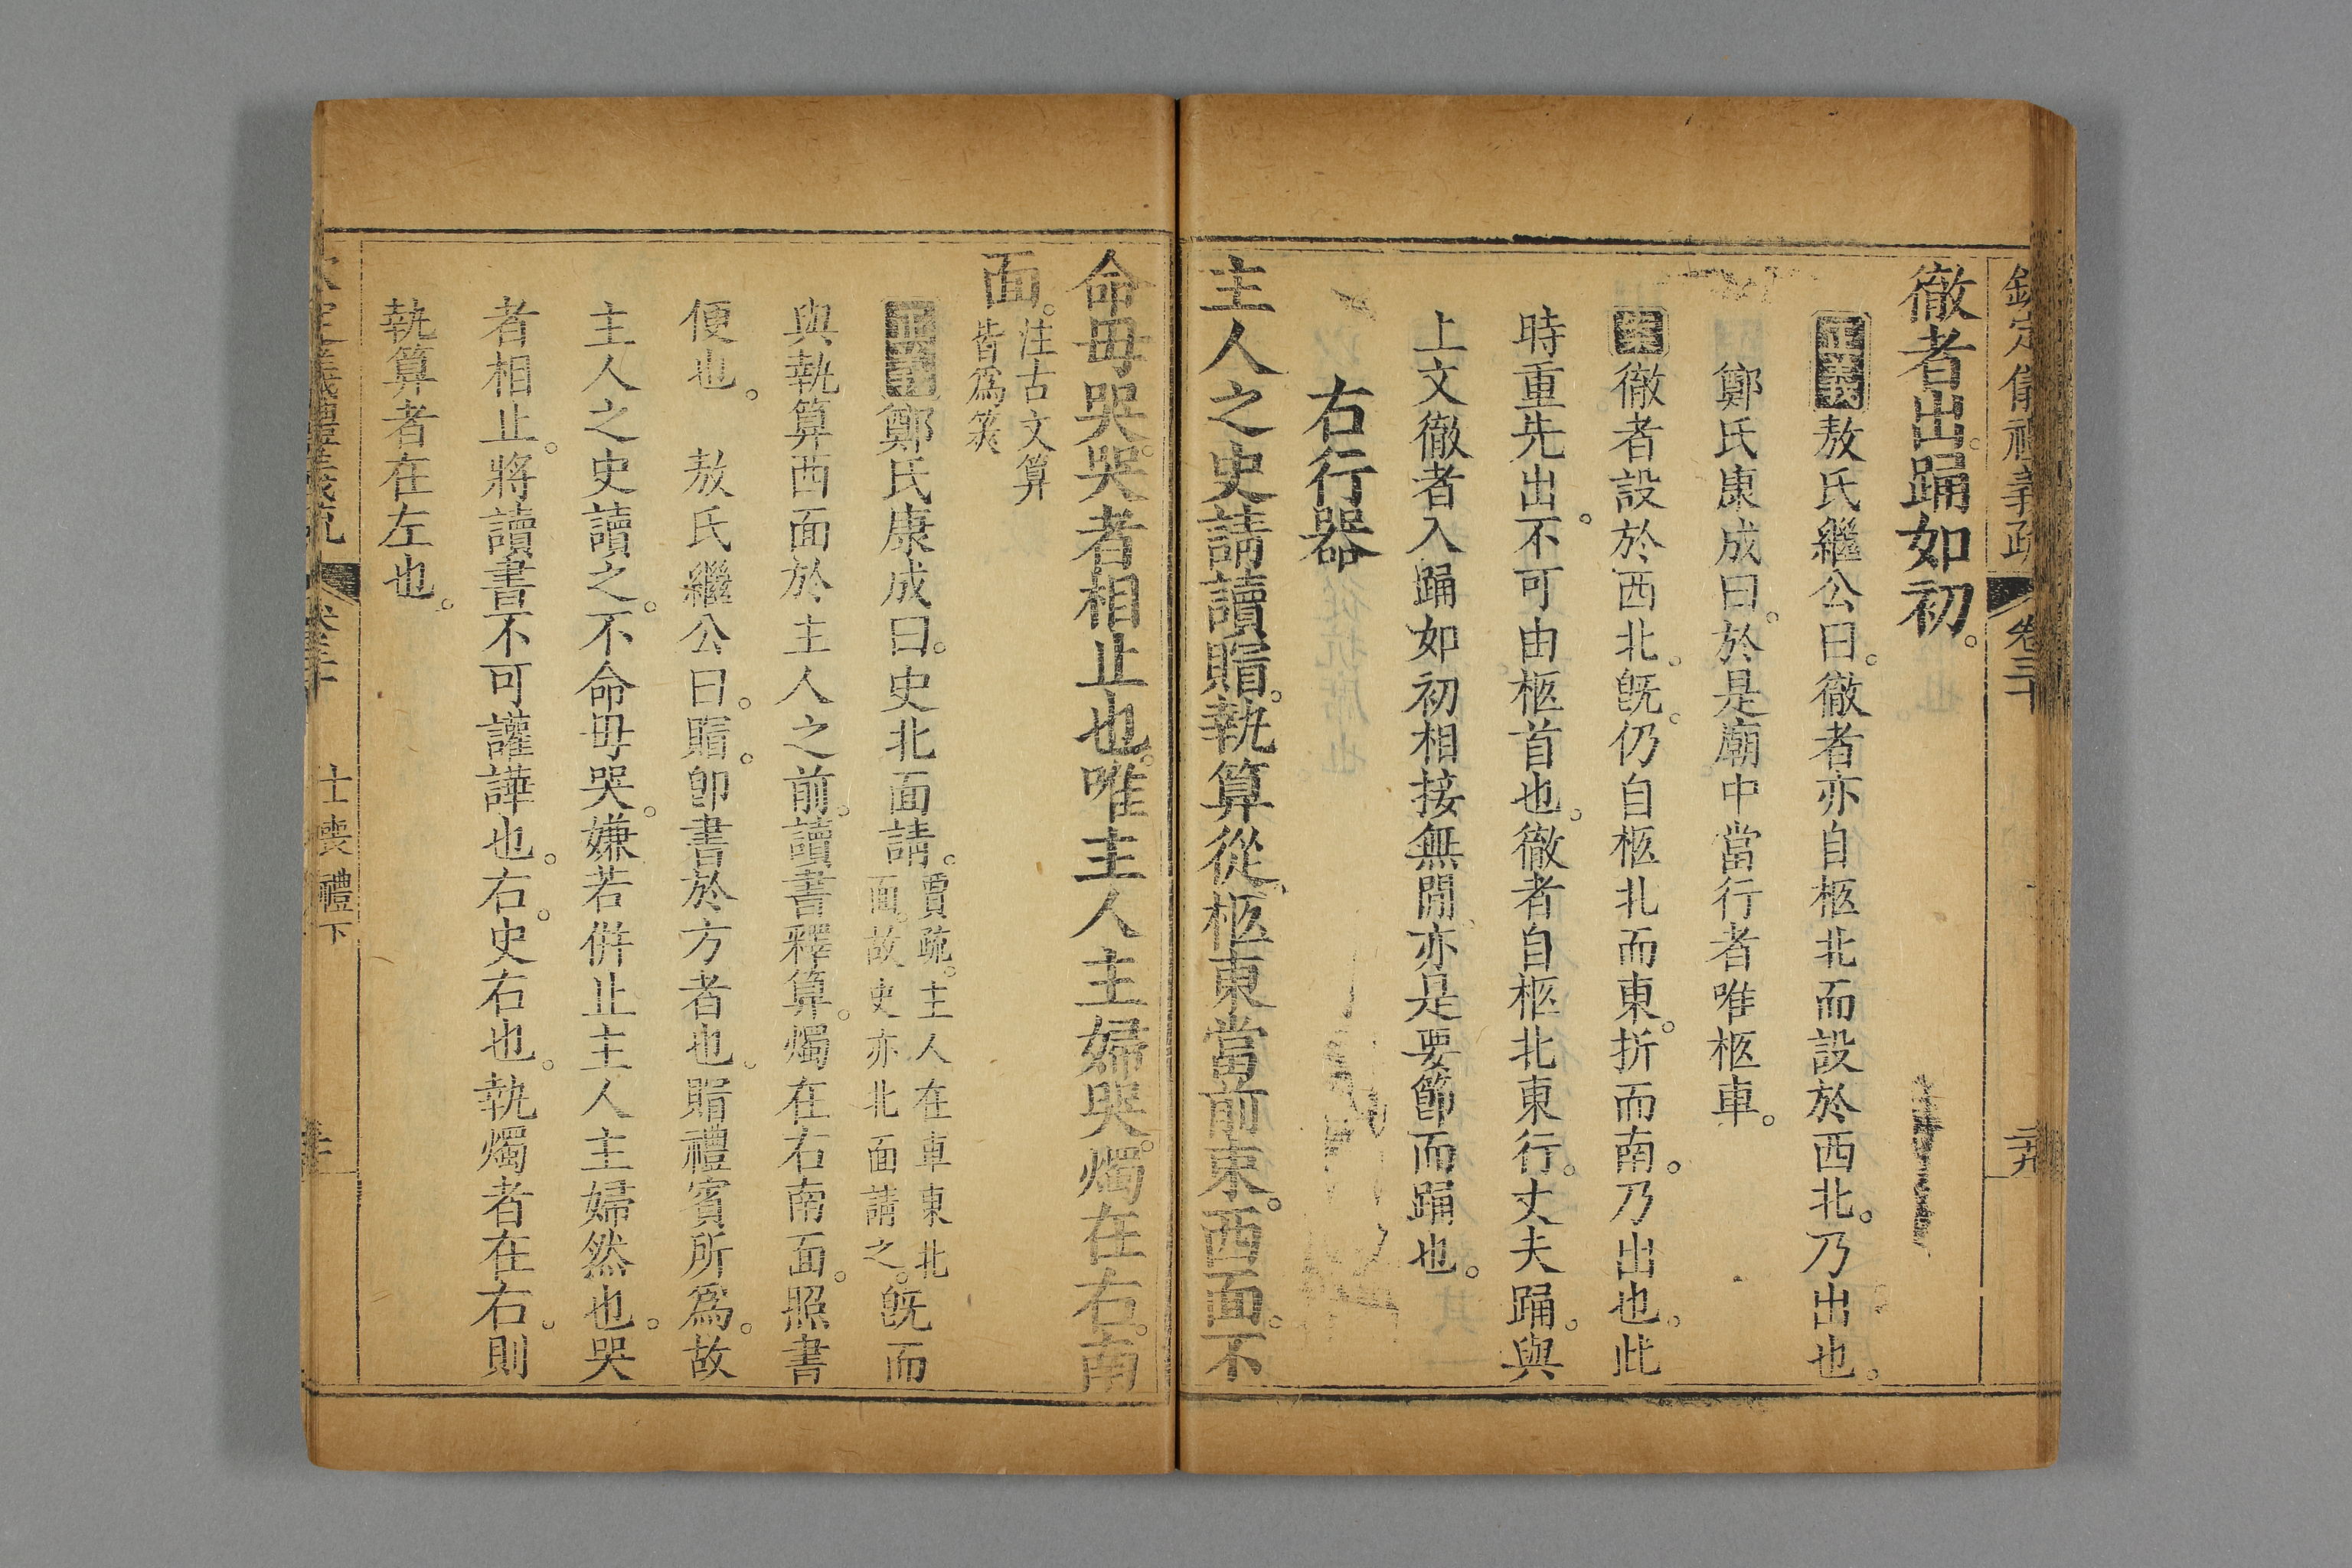 欽定儀禮義疏 卷三十 二九
徹者出。踊如初。
正義敖氏繼公曰。徹者亦自柩北而設於西北。乃出也。
鄭氏康成曰。於是廟中當行者唯柩車。
案徹者設於西北。旣。仍自柩北而東。折而南。乃出也。此
時重先出。不可由柩首也。徹者自柩北東行。丈夫踊。與
上文徹者入踊如初相接無閒。亦是要節而踊也。
右行器
主人之史請讀賵。執算從。柩東當前束。西面。不
命毋哭。哭者相止也。唯主人主婦哭。燭在右。南
面。注古文算
皆爲筴
正義鄭氏康成曰。史北面請。賈疏。主人在車東北
面。故史亦北面請之。旣而
與執算西面於主人之前。讀書釋算。燭在右南面。照書
便也。 敖氏繼公曰。賵。卽書於方者也。賵禮賓所爲。故
主人之史讀之。不命毋哭。嫌若併止主人主婦然也。哭
者相止。將讀書不可讙譁也。右。史右也。執燭者在右。則
執算者在左也。
欽定儀禮義疏 卷三十 士喪禮下